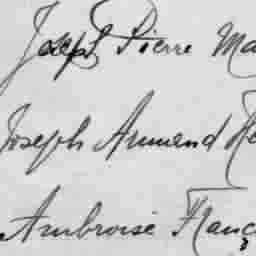 Joseph Pierre Ma
Joseph Armand He
Ambroise Franç